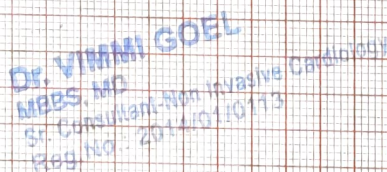 Dr. VIMMI GOEL
MBBS, MD
Sr. Consultant-Non Invasive Cardiology
Reg.No.: 2014/01/0113